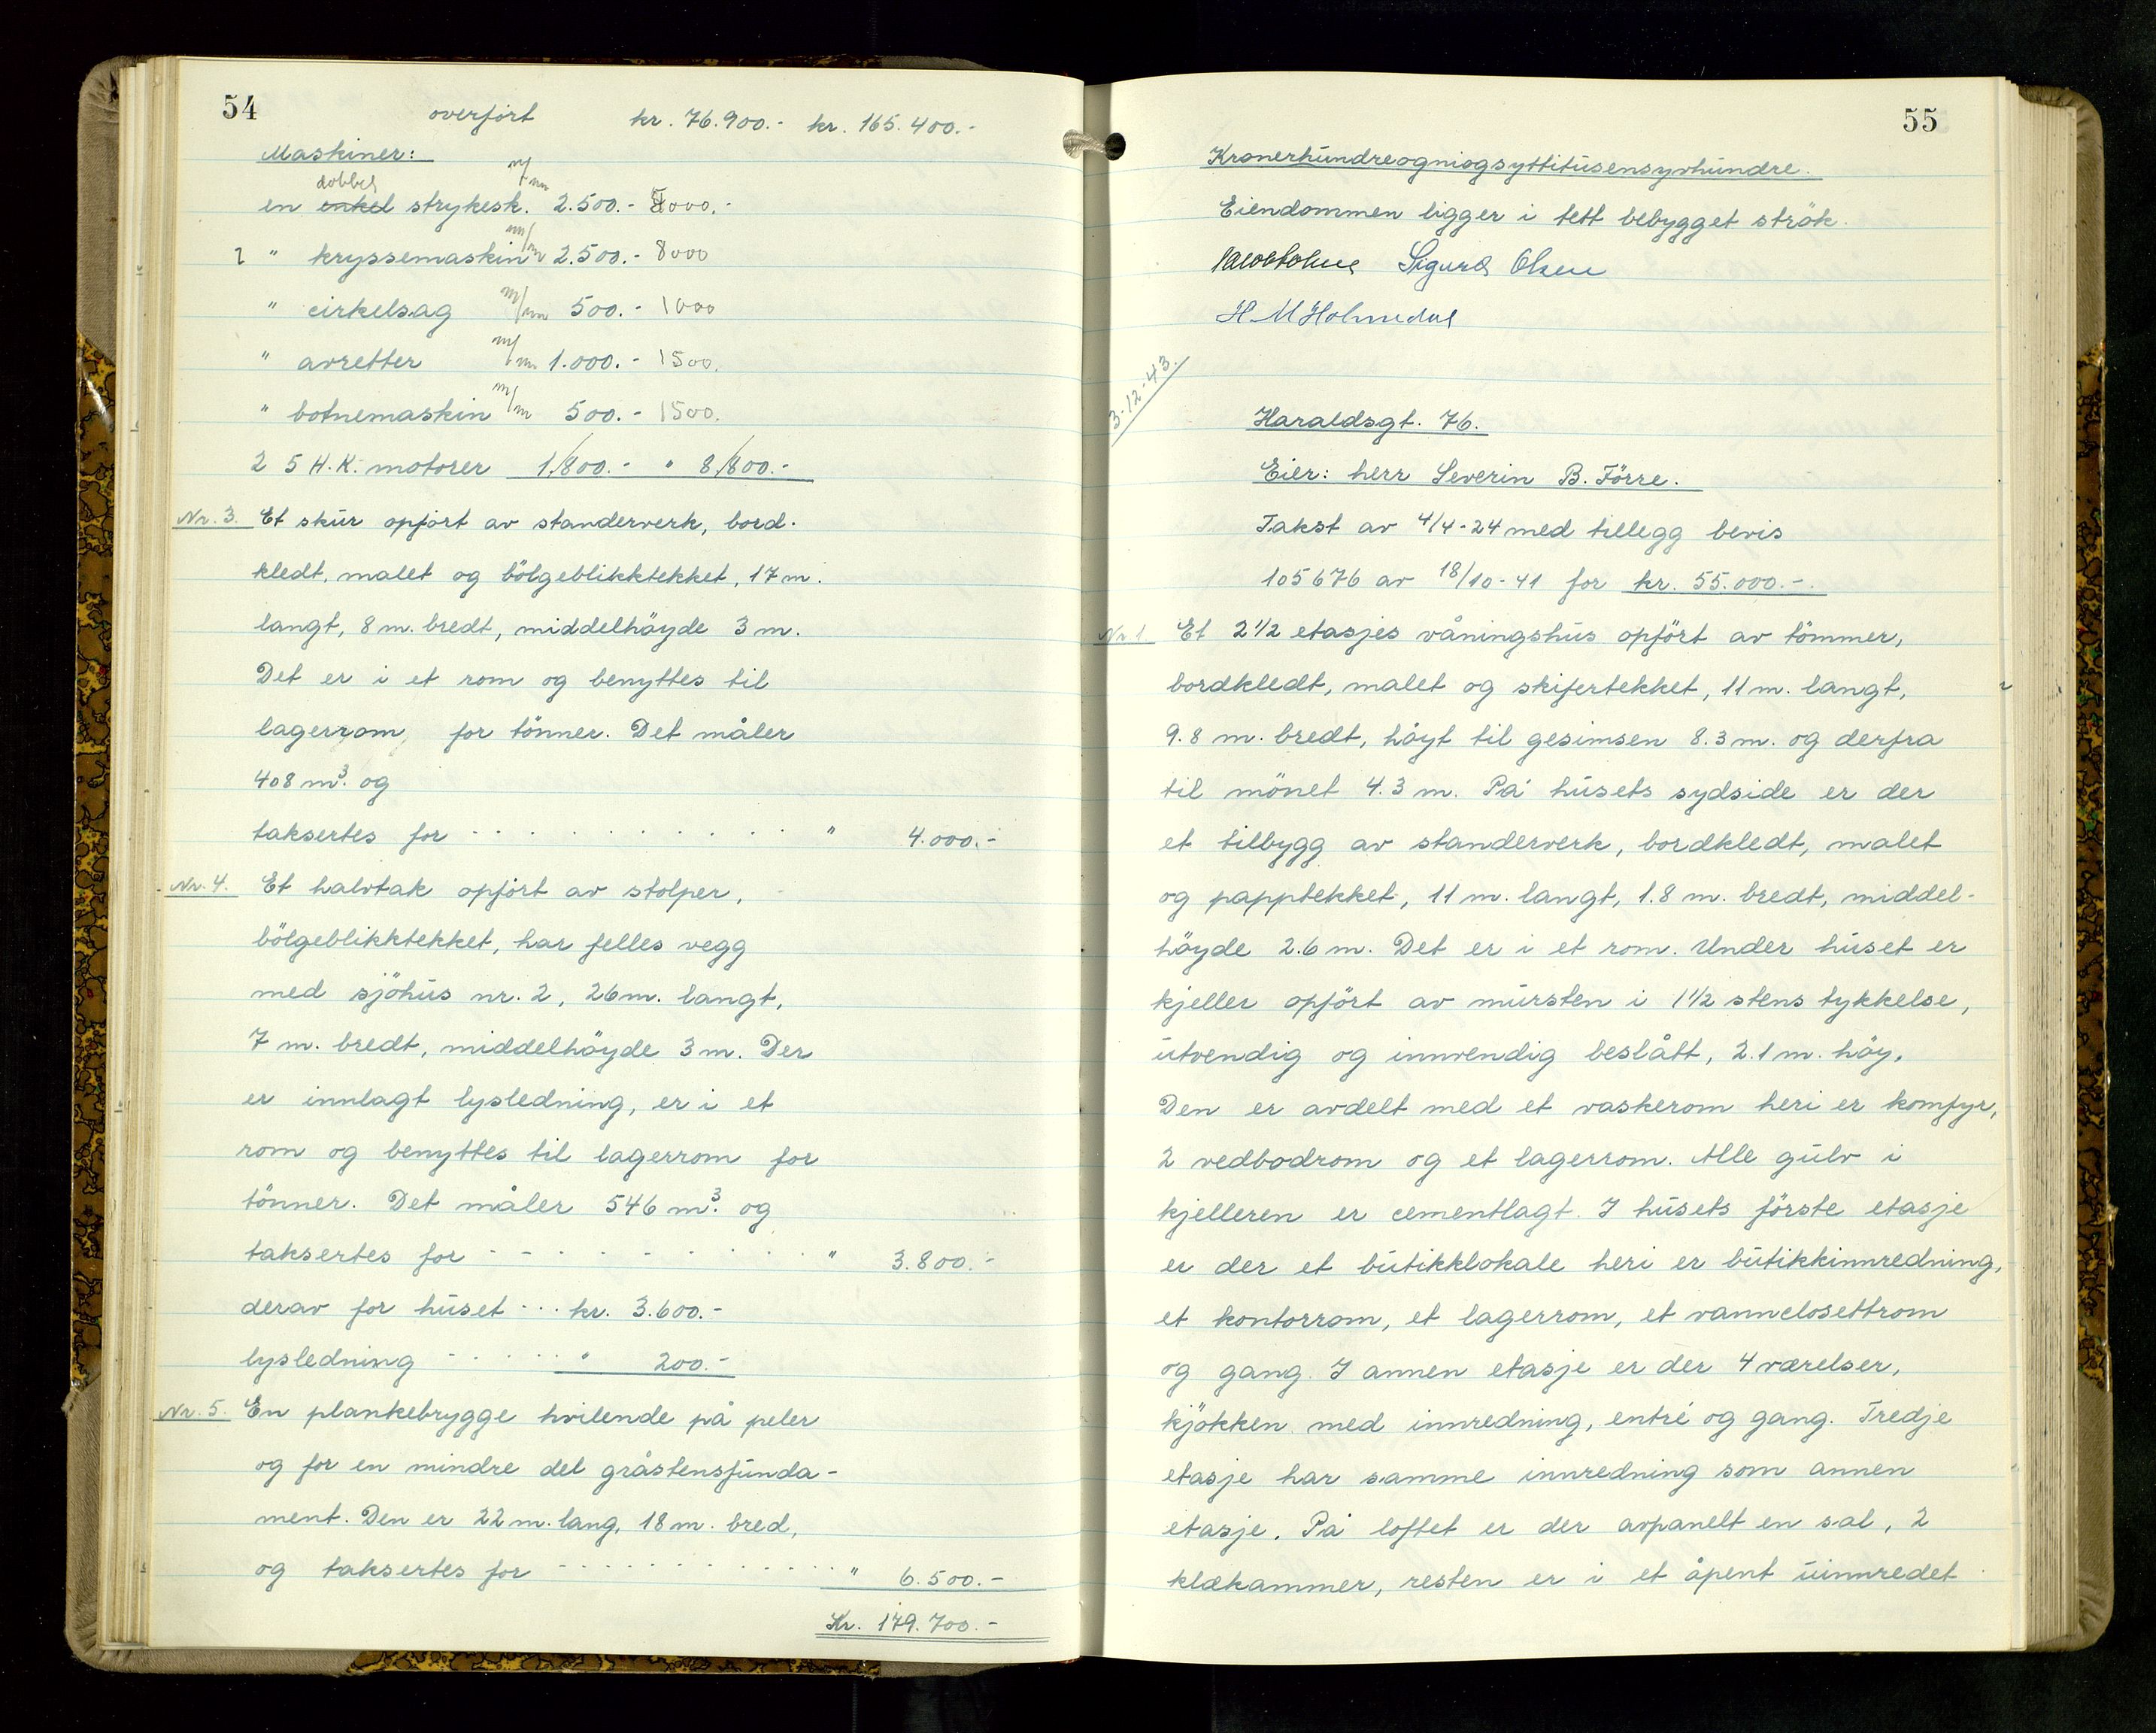 54
overfört kr. 76.900.- kr. 165.400.-
Maskiner:
dobbel
en enkel strykesk. m/m 2.500.- 5000.-
2 " kryssemaskin m/m 2.500.- 8000
" cirkelsag m/m 500.- 1000
" avretter m/m 1.000.- 1500.
" botnemaskin m/m 500.- 1500.
2 5 H.K. motorer 1.800.- " 8.800.-
Nr. 3. Et skur opfört av standerverk, bord-
kledt, malet og bölgeblikktekket, 17 m.
langt, 8 m. bredt, middelhöyde 3 m.
Det er i et rom og benyttes til
lagerrom, for tönner. Det måler
408 m³. og
taksertes for - - - - - - - - - " 4.000.-
Nr. 4. Et halvtak opfört av stolper,
bölgeblikktekket, har felles vegg
med sjöhus nr. 2, 26 m. langt,
7 m. bredt, middelhöyde 3 m. Der
er innlagt lysledning, er i et
rom og benyttes til lagerrom for
tönner. Det måler 546 m³. og
taksertes for - - - - - - - - - " 3.800.-
derav for huset - - - kr. 3.600.-
lysledning - - - - - " 200.-
Nr. 5. En plankebrygge hvilende på peler
og for en mindre del gråstensfunda-
ment. Den er 22 m. lang, 18 m. bred,
og taksertes for - - - - - - - - - " 6.500.-
Kr. 179.700.-
55
Kronerhundreogniogsyttitusensyvhundre.
Eiendommen ligger i tett bebygget strök.
Sigurd Olsen
H M Holmedal
3-12-43.
Haraldsgt. 76.
Eier: herr Severin B. Förre.
Takst av 4/4-24 med tillegg bevis
105676 av 18/10-41 for kr. 55.000.-.
Nr 1 Et 2 1/2 etasjes våningshus opfört av tömmer,
bordkledt, malet og skifertekket, 11 m. langt,
9.8 m. bredt, höyt til gesimsen 8.3 m. og derfra
til mönet 4.3 m. På husets sydside er der
et tilbygg av standerverk, bordkledt, malet
og papptekket, 11 m. langt, 1.8 m. bredt, middel-
höyde 2.6 m. Det er i et rom. Under huset er
kjeller opfört av mursten i 1 1/2 stens tykkelse,
utvendig og innvendig beslått, 2.1 m. höy.
Den er avdelt med et vaskerom heri er komfyr,
2 vedbodrom og et lagerrom. Alle gulv i
kjelleren er cementlagt. I husets förste etasje
er der et butikklokale heri er butikkinnredning,
et kontorrom, et lagerrom, et vannclosettrom
og gang. I annen etasje er der 4 værelser,
kjökken med innredning, entré og gang. Tredje
etasje har samme innredning som annen
etasje. På loftet er der avpanelt en sal, 2
klækammer, resten er i et åpent uinnredet